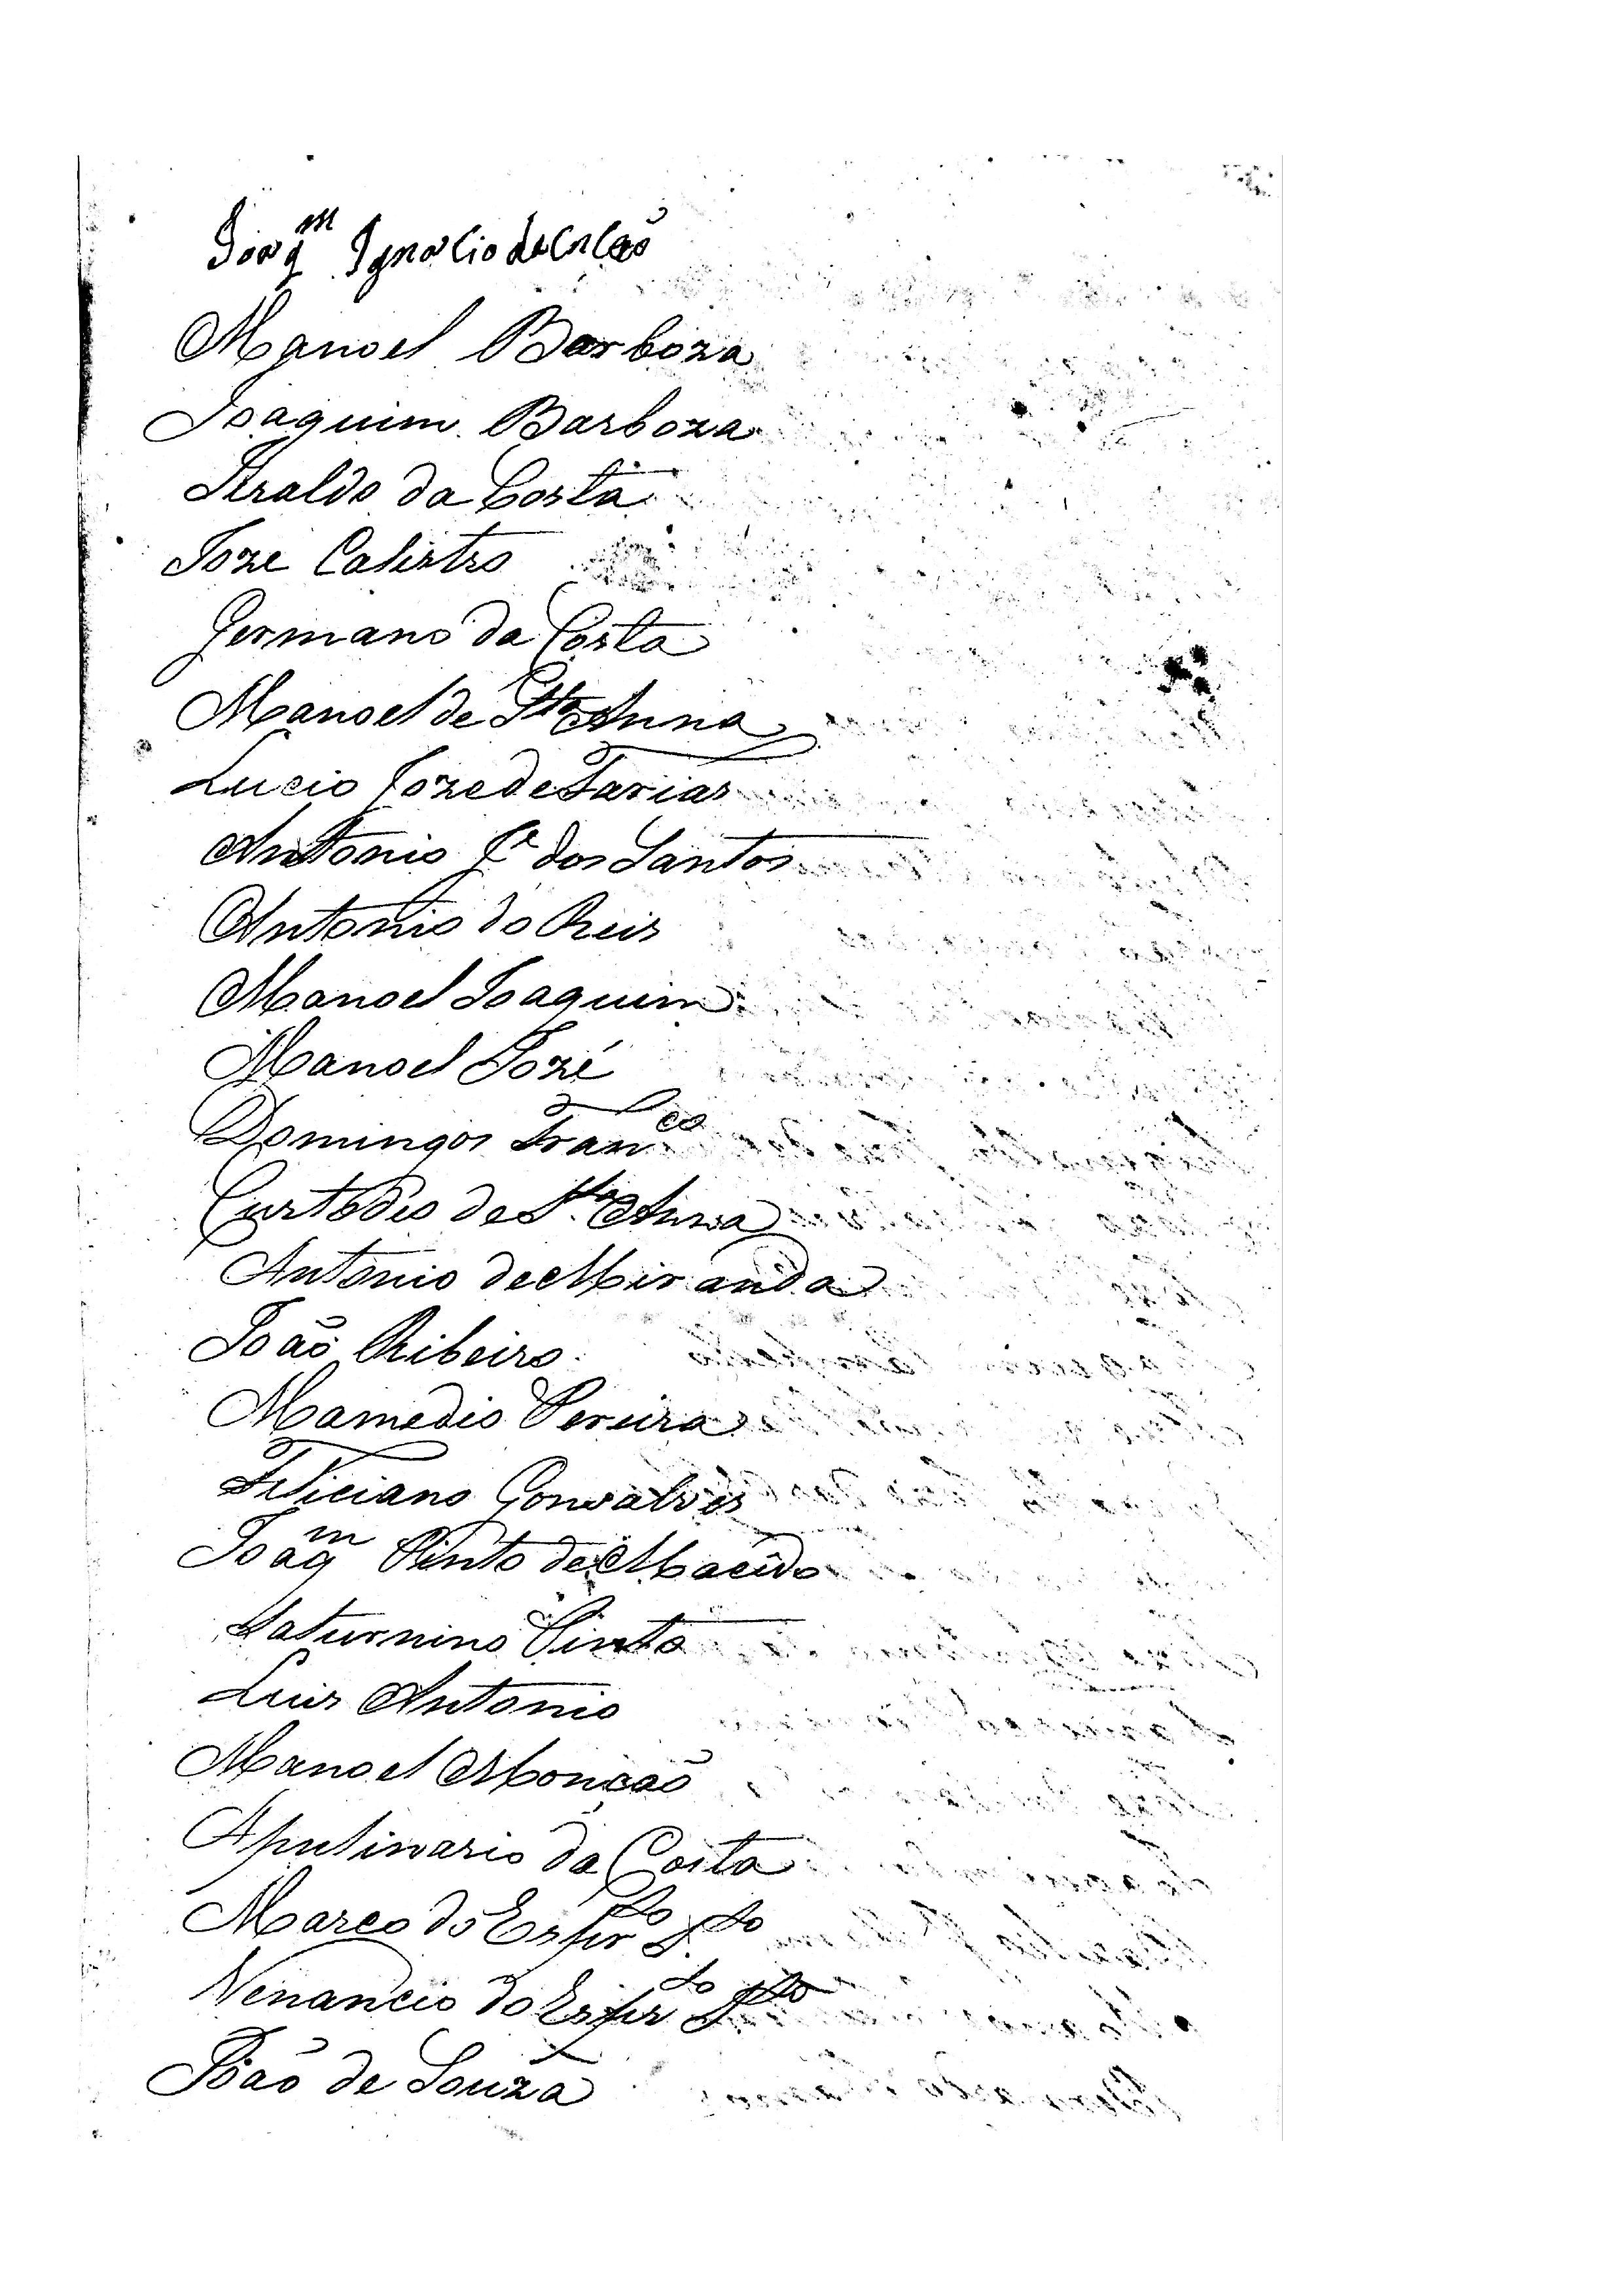 Joaqm Ignacio
Manoel Barboza
Joaquim Barboza
da Costa
Joze Calistro
Germano da Costa
Manoel de Sta Anna
Lucio Joze de Farias
Antonio Je dos Santos
Antonio do Reis
Manoel Joaquim
Manoel Jozé
Domingos Franco
Custodio de Sta Anna
Antonio de Miranda
João Ribeiro
Mamedio Pereira
Feliciano Gonsalves
Joaqm Pinto de Macêdo
Saturnino Pinto
Luis Antonio
Manoel Monção
Apulinario da Costa
Marco do Espirto Sto
Venancio do Espirto Sto
João de Souza